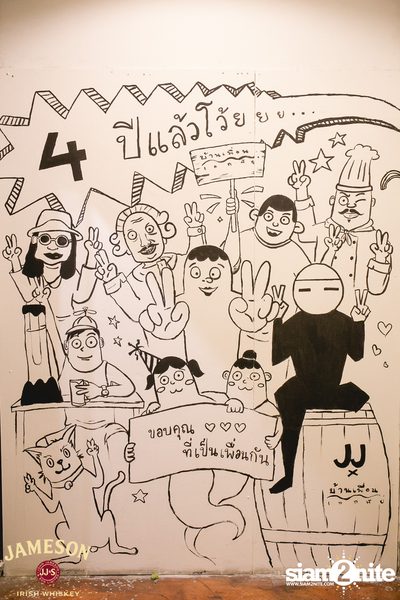 4 ปีแล้วโว้ยยย...
บ้านเพื่อน
ขอบคุณ ♡♡♡
ที่เป็นเพื่อนกัน
JJ
×
บ้านเพื่อน
JAMESON
JJ&S
IRISH WHISKEY
siam2nite
WWW.SIAM2NITE.COM